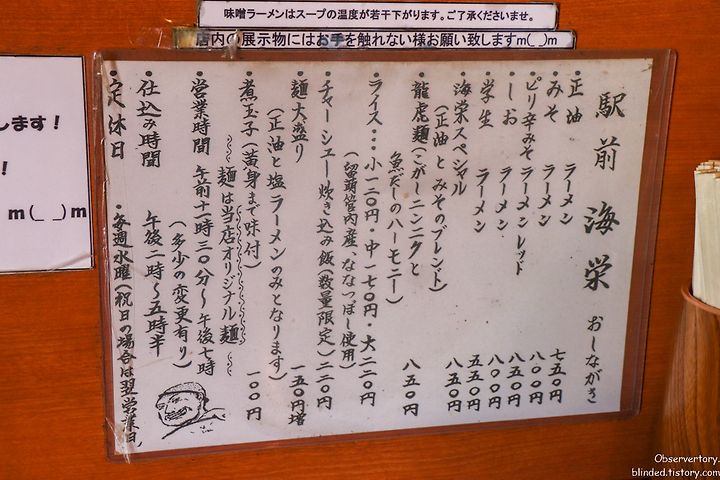 味噌ラーメンはスープの温度が若干下がります。ご了承くださいませ。
店内の展示物にはお手を触れない様お願い致しますm(_ _)m
します！
！
m(_ _)m
駅前 海栄 おしながき
・正油 ラーメン 七五〇円
・みそ ラーメン 八〇〇円
・ピリ辛みそ ラーメンレッド 八五〇円
・しお ラーメン 八〇〇円
・学生 ラーメン 五五〇円
・海栄スペシャル 八五〇円
(正油とみそのブレンド)
・龍虎麺(こがしニンニクと 八五〇円
魚だしのハーモニー)
・ライス…小一二〇円・中一七〇円・大二二〇円
(留萌管内産、ななつぼし使用)
・チャーシュー炊き込み飯(数量限定)二二〇円
・麺大盛り 一五〇円増
(正油と塩ラーメンのみとなります)
・煮玉子(黄身まで味付) 一〇〇円
麺は当店オリジナル麺
・営業時間 午前十一時三〇分〜午後七時
(多少の変更有り)
・仕込み時間 午後二時〜五時半
・定休日 ・毎週水曜(祝日の場合は翌営業日)
Observertory.
blinded.tistory.com